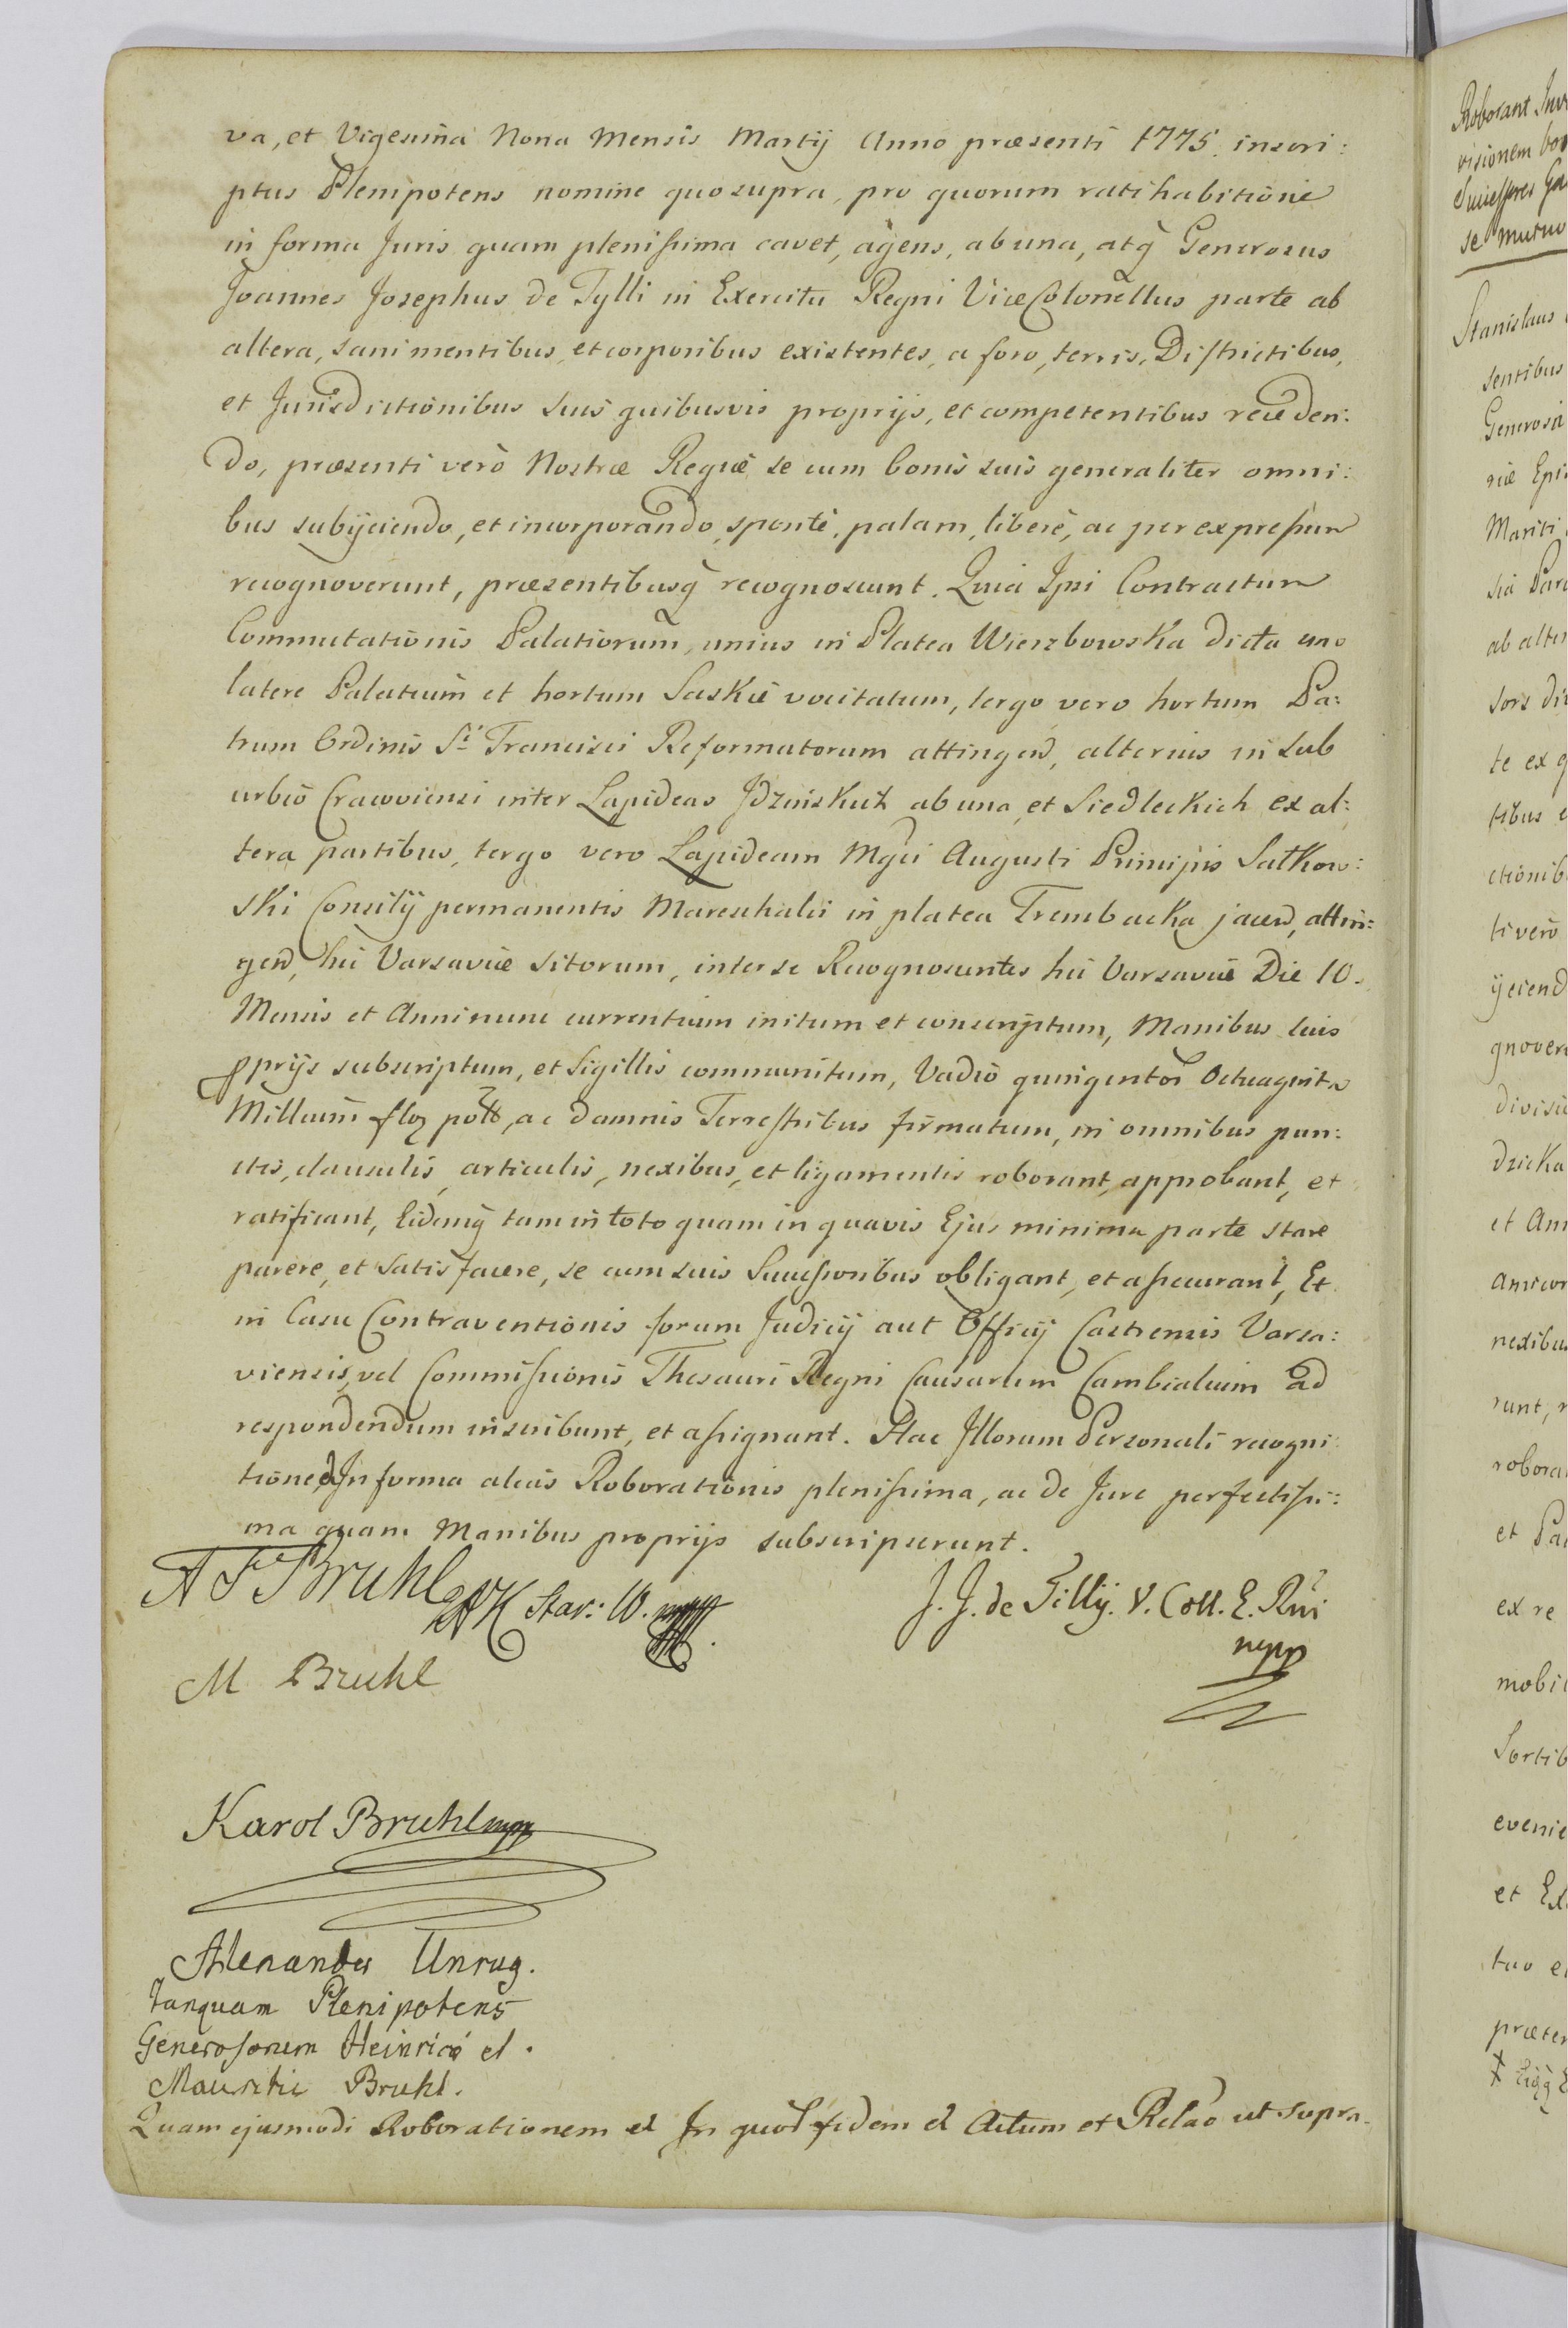 va, et Vigesima Nona Mensis Martij Anno præsenti 1775. inscri:
ptus Plenipotens nomine quo supra, pro quorum ratihabitione
in forma Juris quam plenissima cavet, agens, ab una, atq̃ Generosus
Joannes Josephus de Tylli in Exercitu Regni ViceColonellus parte ab
altera, sani mentibus, et corporibus existentes, a foro, terris, Districtibus,
et Jurisdictionibus suis quibusvis proprijs, et competentibus receden:
do, præsenti verò Nostræ Regiæ se cum bonis suis generaliter omni:
bus subijciendo, et incorporando, spontè, palam, liberè, ac per expressum
recognoverunt, præsentibusq̃ recognoscunt. Quia Ipsi Contractum
Commutationis Palatiorum, unius in Platea Wierzbowska dicta uno
latere Palatium et hortum Saskie vocitatum, tergo vero hortum Pa:
trum Ordinis Sti Francisci Reformatorum attingen, alterius in sub
urbio Cracoviensi inter Lapideas Jdzinskich ab una, et Siedleckich ex al:
tera partibus, tergo vero Lapideam Mgci Augusti Principis Sulkow:
ski Consilij permanentis Mareschalci in platea Trembacka jacen, attin:
gen, hic Varsaviæ sitorum, inter se Recognoscentes hic Varsaviæ Die 10.
Mensis et Anni nunc currentium initum et conscriptum, Manibus suis
pprijs subscriptum, et Sigillis communitum, Vadio quingentor Octuaginta
Millium flor poll, ac damnis Terrestribus firmatum, in omnibus pun:
ctis, clausulis, articulis, nexibus, et ligamentis roborant, approbant, et
ratificant, Eidemq̃ tam in toto quam in quavis Ejus minima parte stare
parere, et satisfacere, se cum suis Successoribus obligant, et assecurant, Et
in Casu Contraventionis forum Judicij aut Officij Castrensis Varsa:
viensis, vel Commissionis Thesauri Regni Causarum Cambialium ad
respondendum inscribunt, et assignant. Hac Illorum Personali recogni:
tione, In forma alias Roborationis plenissima, ac de Jure perfectissi:
ma quam Manibus proprijs subscripserunt.
A F Bruhl Star: W. mpp.
J. J. de Tilly. V. Coll. E. Rni
mpp
M Bruhl
Karol Bruhl mpp
Alexander Unrug.
tanquam Plenipotens
Generosorum Heinrici et.
Mauritii Bruhl.
Quam ejusmodi Roborationem et In quor fidem et Actum et Relao ut supra.
Roborant
visionem
Successores
se mutuo
Stanislaus
sentibus
Generosa
Mariti
ab alter
sors
te ex
tibus
ctionib
ti verò
ijciend
gnover
divisi
dzicka
et Ann
amicor
nexibus
runt,
robora
et Pa
ex re
mobil
Sortib
evenie
et Ex
tuo e
præter